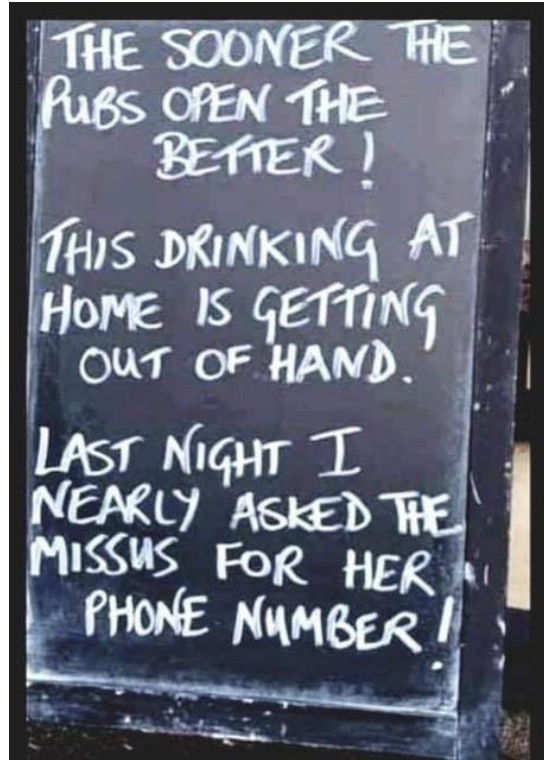 THE SOONER THE
PUBS OPEN THE
BETTER!
THIS DRINKING AT
HOME IS GETTING
OUT OF HAND.
LAST NIGHT I
NEARLY ASKED THE
MISSUS FOR HER
PHONE NUMBER!